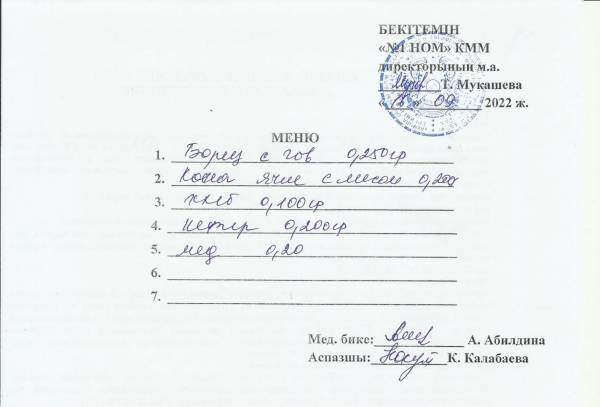 БЕКІТЕМІН
«№1 НОМ» КММ
директорының м.а.
Т. Мукашева
« 16 » 09 2022 ж.
МЕНЮ
1. Борщ с гов 0,250гр
2. Каша ячн с мясом 0,200
3. хлеб 0,100гр
4. Кефир 0,200гр
5. мед 0,20
6.
7.
Мед. бике: А. Абилдина
Аспазшы: К. Калабаева